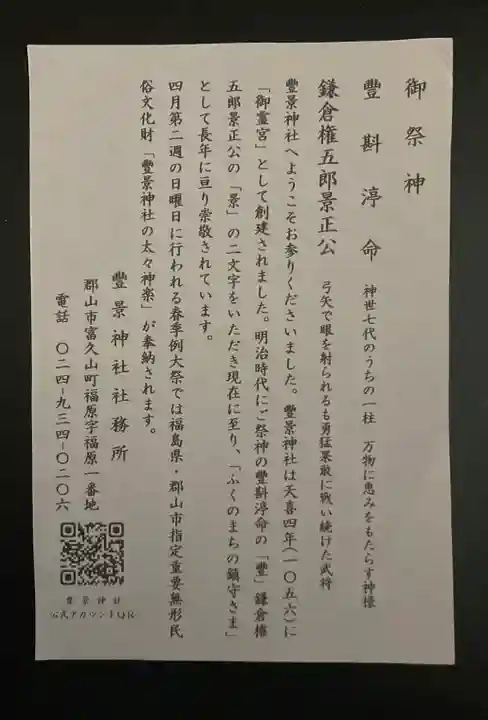 御祭神
豐斟渟命　神世七代のうちの一柱　万物に恵みをもたらす神様
鎌倉権五郎景正公　弓矢で眼を射られるも勇猛果敢に戦い続けた武将
豐景神社へようこそお参りくださいました。豐景神社は天喜四年(一〇五六)に
「御霊宮」として創建されました。明治時代にご祭神の豐斟渟命の「豐」鎌倉権
五郎景正公の「景」の二文字をいただき現在に至り、「ふくのまちの鎮守さま」
として長年に亘り崇敬されています。
四月第二週の日曜日に行われる春季例大祭では福島県・郡山市指定重要無形民
俗文化財「豐景神社の太々神楽」が奉納されます。
豐景神社社務所
郡山市富久山町福原字福原一番地
電話　〇二四-九三四-〇二〇六
豐景神社
公式アカウントQR